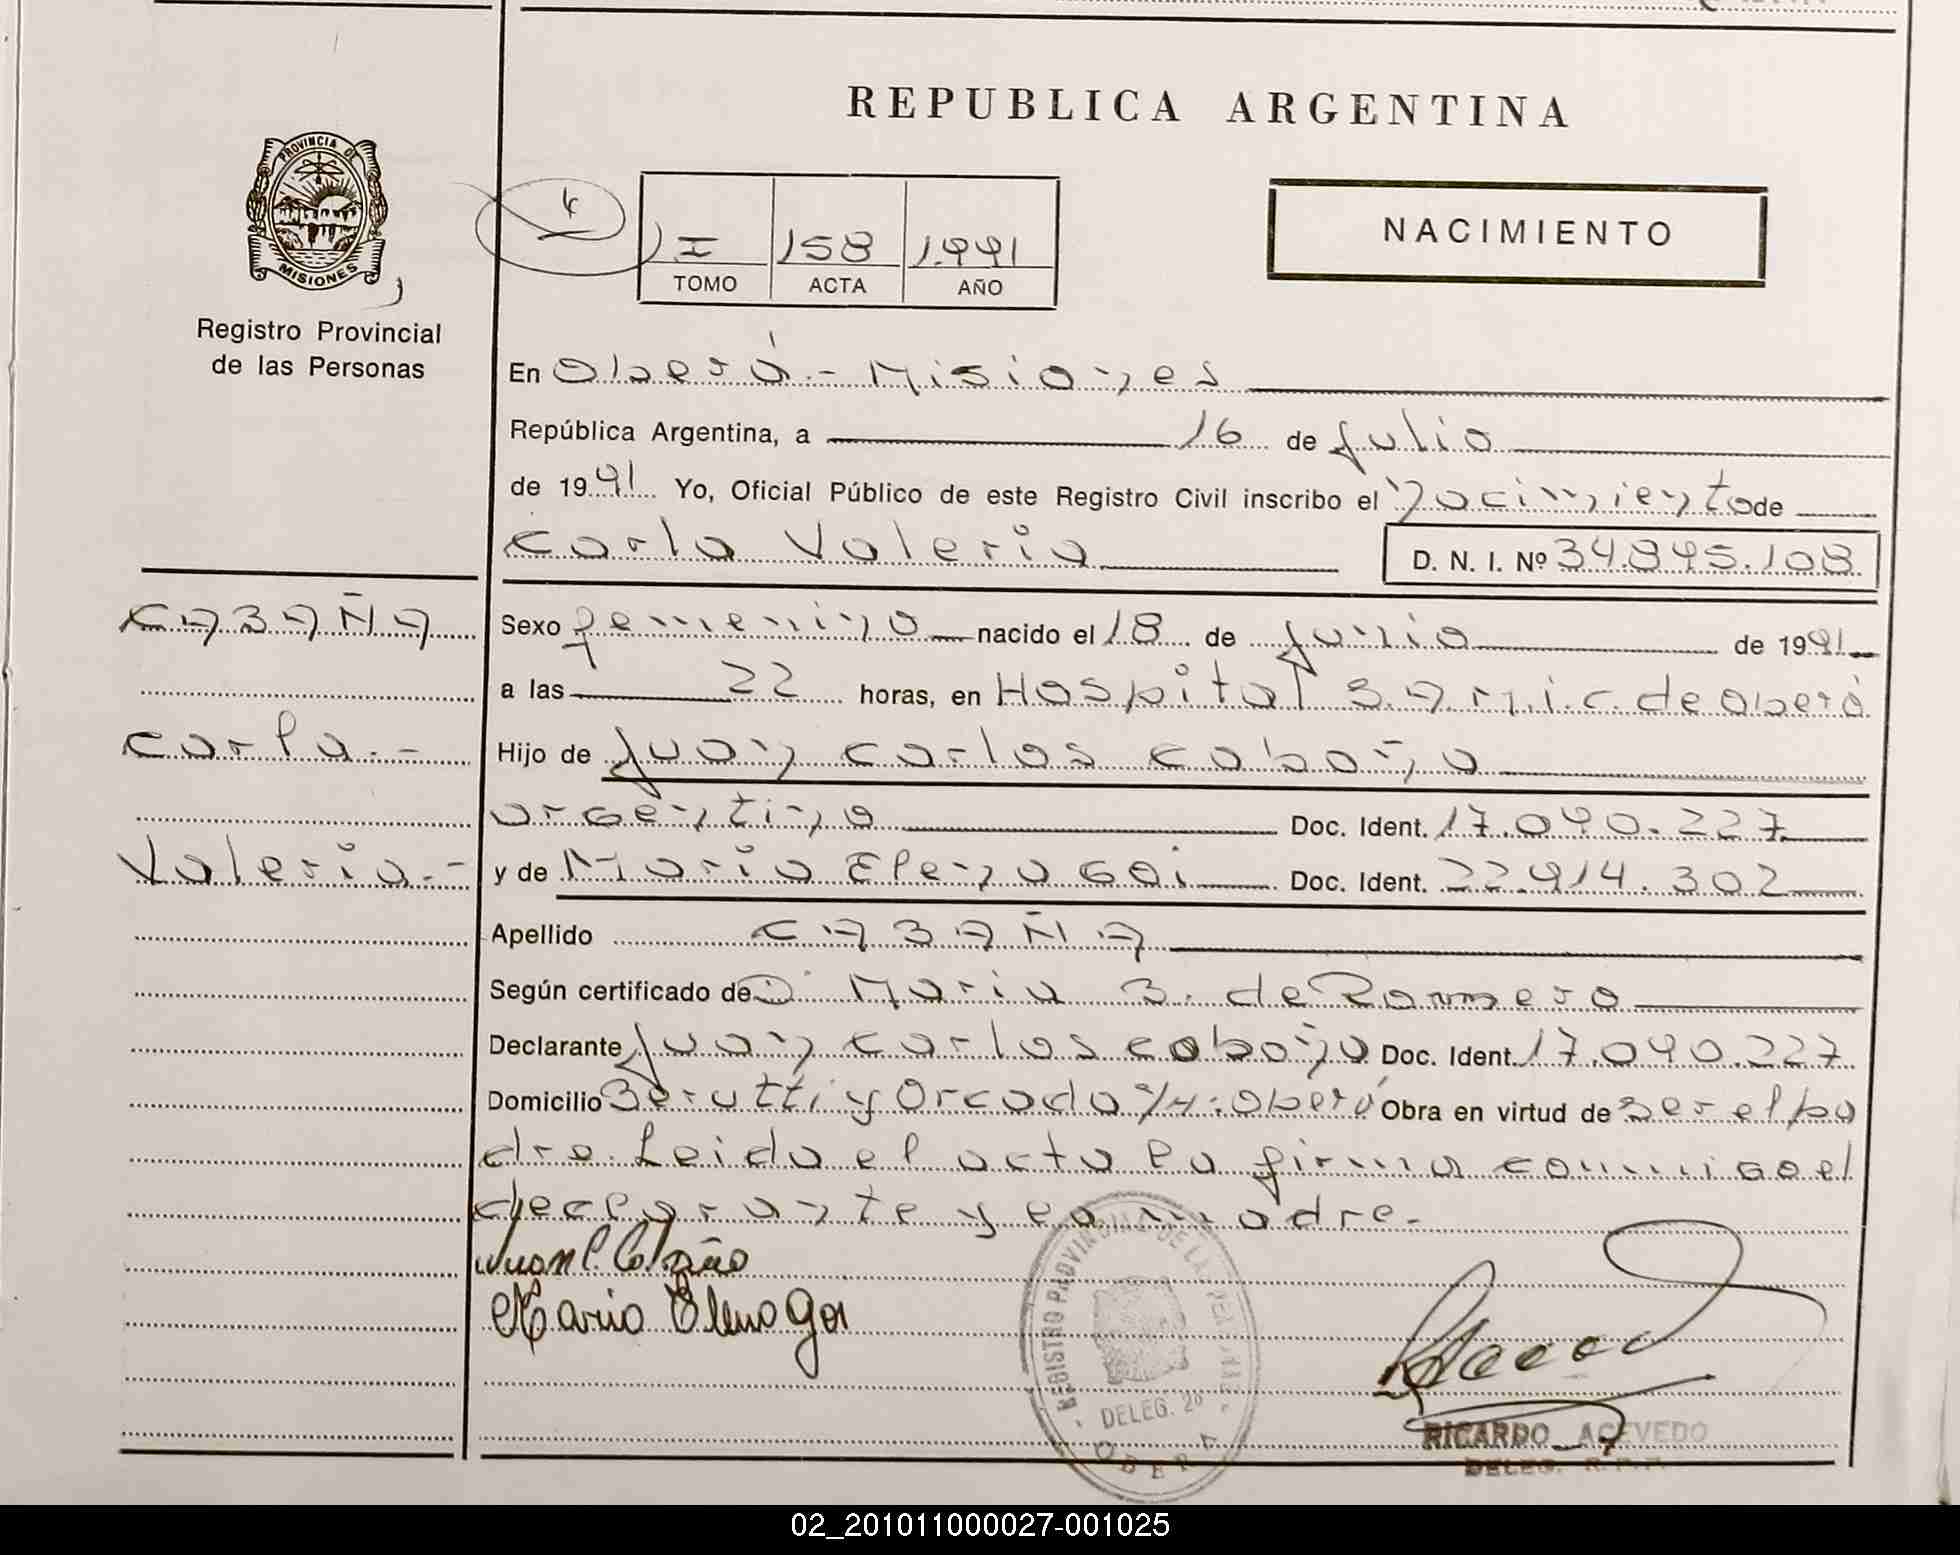 REPUBLICA ARGENTINA
PROVINCIA DE
MISIONES
Registro Provincial
de las Personas
I 158 1.991
TOMO ACTA AÑO
NACIMIENTO
En Oberá - Misiones
República Argentina, a 16 de Julio
de 1991 Yo, Oficial Público de este Registro Civil inscribo el Nacimiento de
Carla Valeria D. N. I. Nº 34.895.108
CABAÑA
Carla.-
Valeria.-
Sexo femenino nacido el 18 de Junio de 1991
a las 22 horas, en Hospital S.A.M.I.C. de Oberá
Hijo de Juan Carlos Cabaña
argentino Doc. Ident. 17.090.227
y de Maria Elena Goi Doc. Ident. 22.914.302
Apellido CABAÑA
Según certificado de Maria B. de Romero
Declarante Juan Carlos Cabaña Doc. Ident. 17.090.227
Domicilio Berutti y Orcada Oberá Obra en virtud de ser el pa
dre. Leida el acta la firma conmigo el
declarante y la madre.-
Juan C. Cabaña
Maria Elena Goi
REGISTRO PROVINCIAL DE LAS PERSONAS
DELEG. 2º
OBERA
RICARDO ACEVEDO
DELEG. R.P.P.
02_201011000027-001025